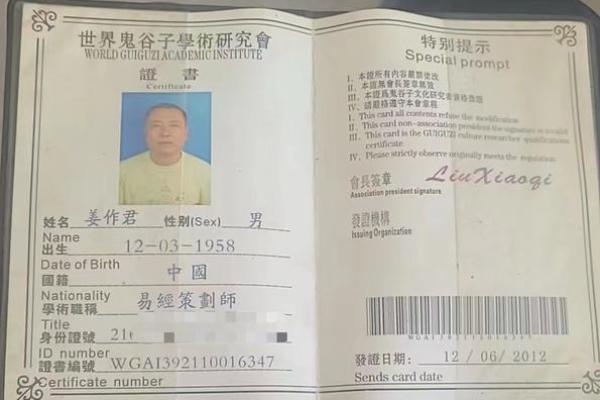 世界鬼谷子學術研究會
WORLD GUIGUZI ACADEMIC INSTITUTE
證書
Certificate
姓名 姜作君 性别(Sex) 男
Name
出生 12-03-1958
Date of Birth
國籍 中國
Nationality
學術職稱 易經策劃師
Title
身份證號 21
ID number
證書編號 WGAI392110016347
Certificate number
特别提示
Special prompt
I、本證所有内容嚴禁塗改
II、本證無會長簽章無效
III、本證爲鬼谷子文化研究者資格憑證
IV、請嚴格遵守本會章程
I、This card all contents refuse the modification
II、This card non-association president the signature is invalid
III、This card is the GUIGUZI culture researcher qualifications
certificate.
IV、Please strictly observe originally meets the regulation
會長簽章 LiuXiaoqi
Association president signature
發證機構
Issuing Organization
WGAI392110016347
發證日期: 12/06/2012
Sends card date